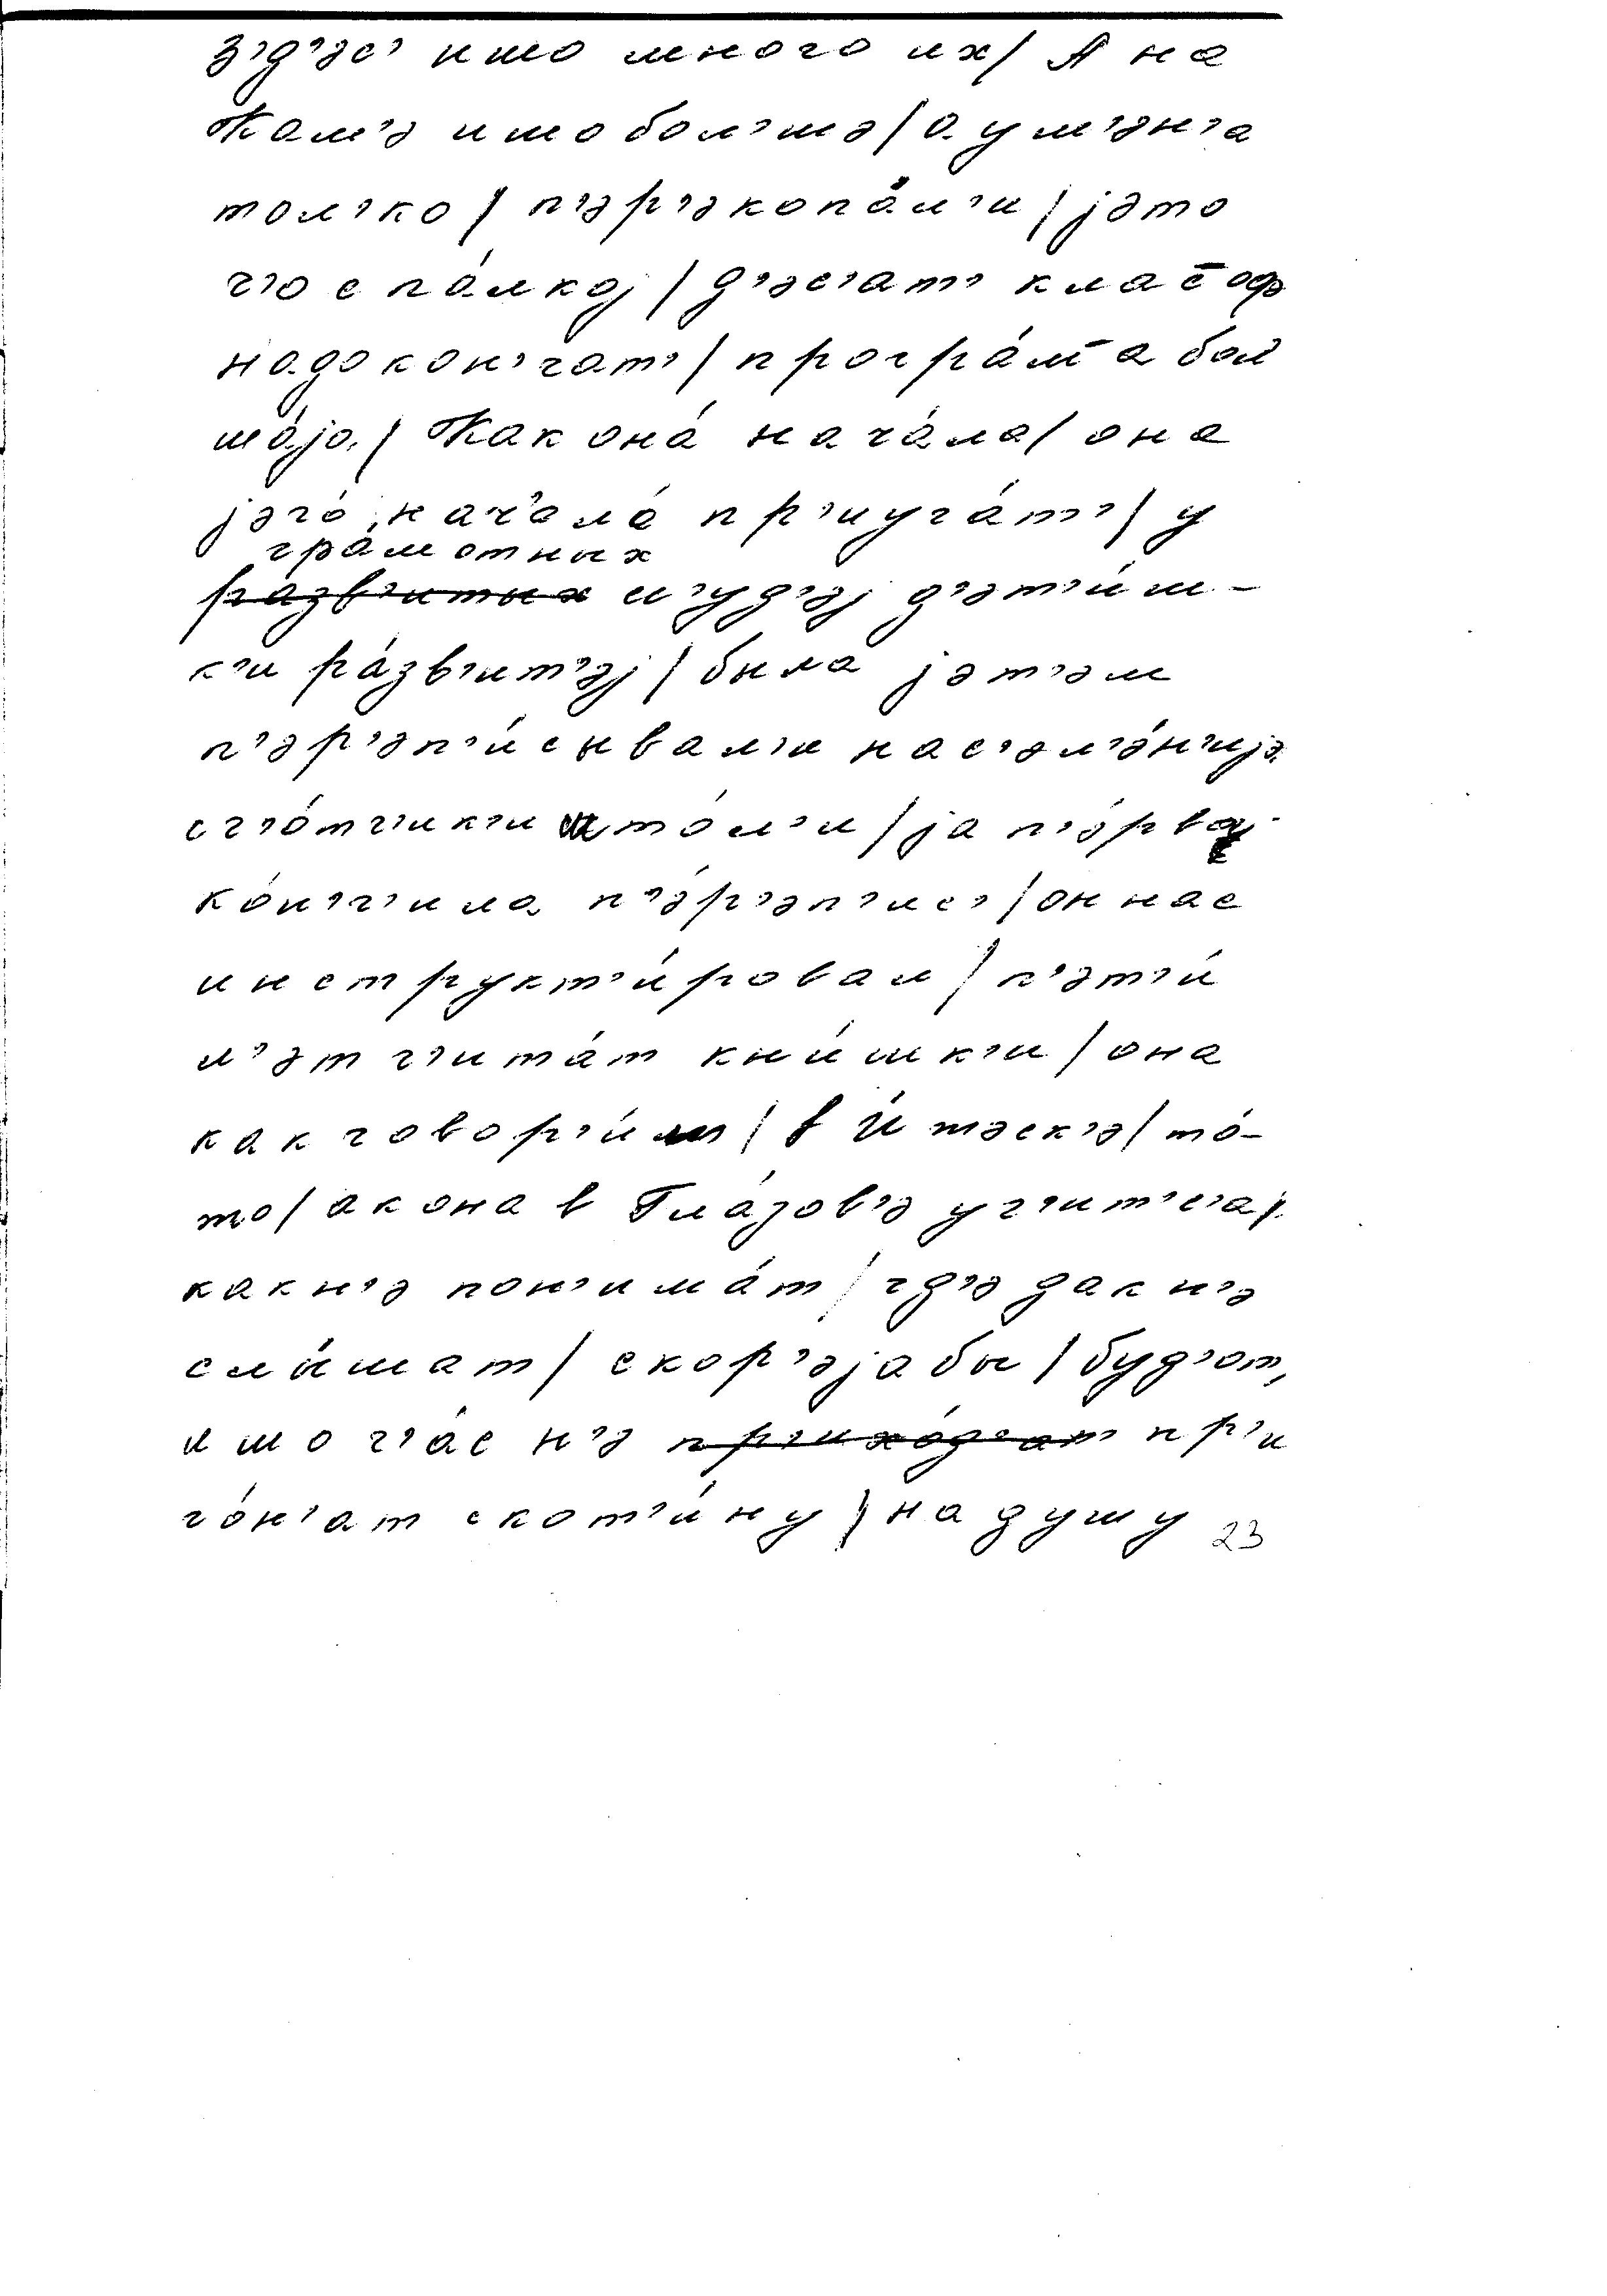 з'д'эс' ишо много их/ А на
Кам'э ишо бол'шэ/ а ум'эн'а
тол'ко/ п'эр'экопа́л'и/ јэто
ч'о с па́лкој/ д'эс'ат' кла с̄ оф
надо кон'чат'/ програ́м̄а бол'
ша́ја/ Как она́ нача́ла/ она
јэго́ начала́ пр'иуча́т'/ у
гра́мотных
~~разв'итых~~ л'уд'эј д'эт'и́ш-
к'и ра́зв'ит'эј/ была јэт'эм
п'эр'эп'и́сывал'и нас'эл'э́н'ијэ
сч'о́тч'ик'и што́л'и/ ја п'э́рвај
ко́н'ч'ила п'э́р'эп'ис'/ он нас
инструкт'и́ровал/ п'эт'и́
л'эт ч'ита́т кни́шк'и/ она
как говор'и́м/ в И́тэск'э/ то́-
то/ ак она в Гла́зов'э уч'ит'с'а/
как н'э пон'има́т/ гд'э дак н'э
слы́шат/ скор'эја бы/ буд'от,
ишо ч'ас н'э ~~пр'ихо́д'ат~~ пр'и
го́н'ат скот'и́ну/ на душу 23